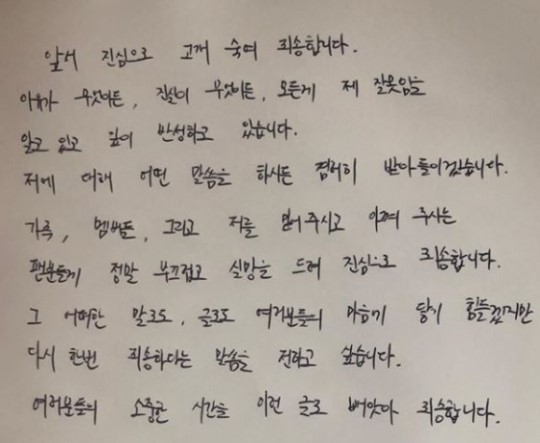 앞서 진심으로 고개 숙여 죄송합니다.
이유가 무엇이든, 진실이 무엇이든, 모든게 제 잘못임을
알고 있고 깊이 반성하고 있습니다.
저에 대해 어떤 말씀을 하시든 겸허히 받아들이겠습니다.
가족, 멤버들, 그리고 저를 믿어주시고 아껴 주시는
팬분들게 정말 부끄럽고 실망을 드려 진심으로 죄송합니다.
그 어떠한 말로도, 글로도 여러분들의 마음에 닿기 힘들겠지만
다시 한번 죄송하다는 말씀을 전하고 싶습니다.
여러분들의 소중한 시간을 이런 글로 빼앗아 죄송합니다.